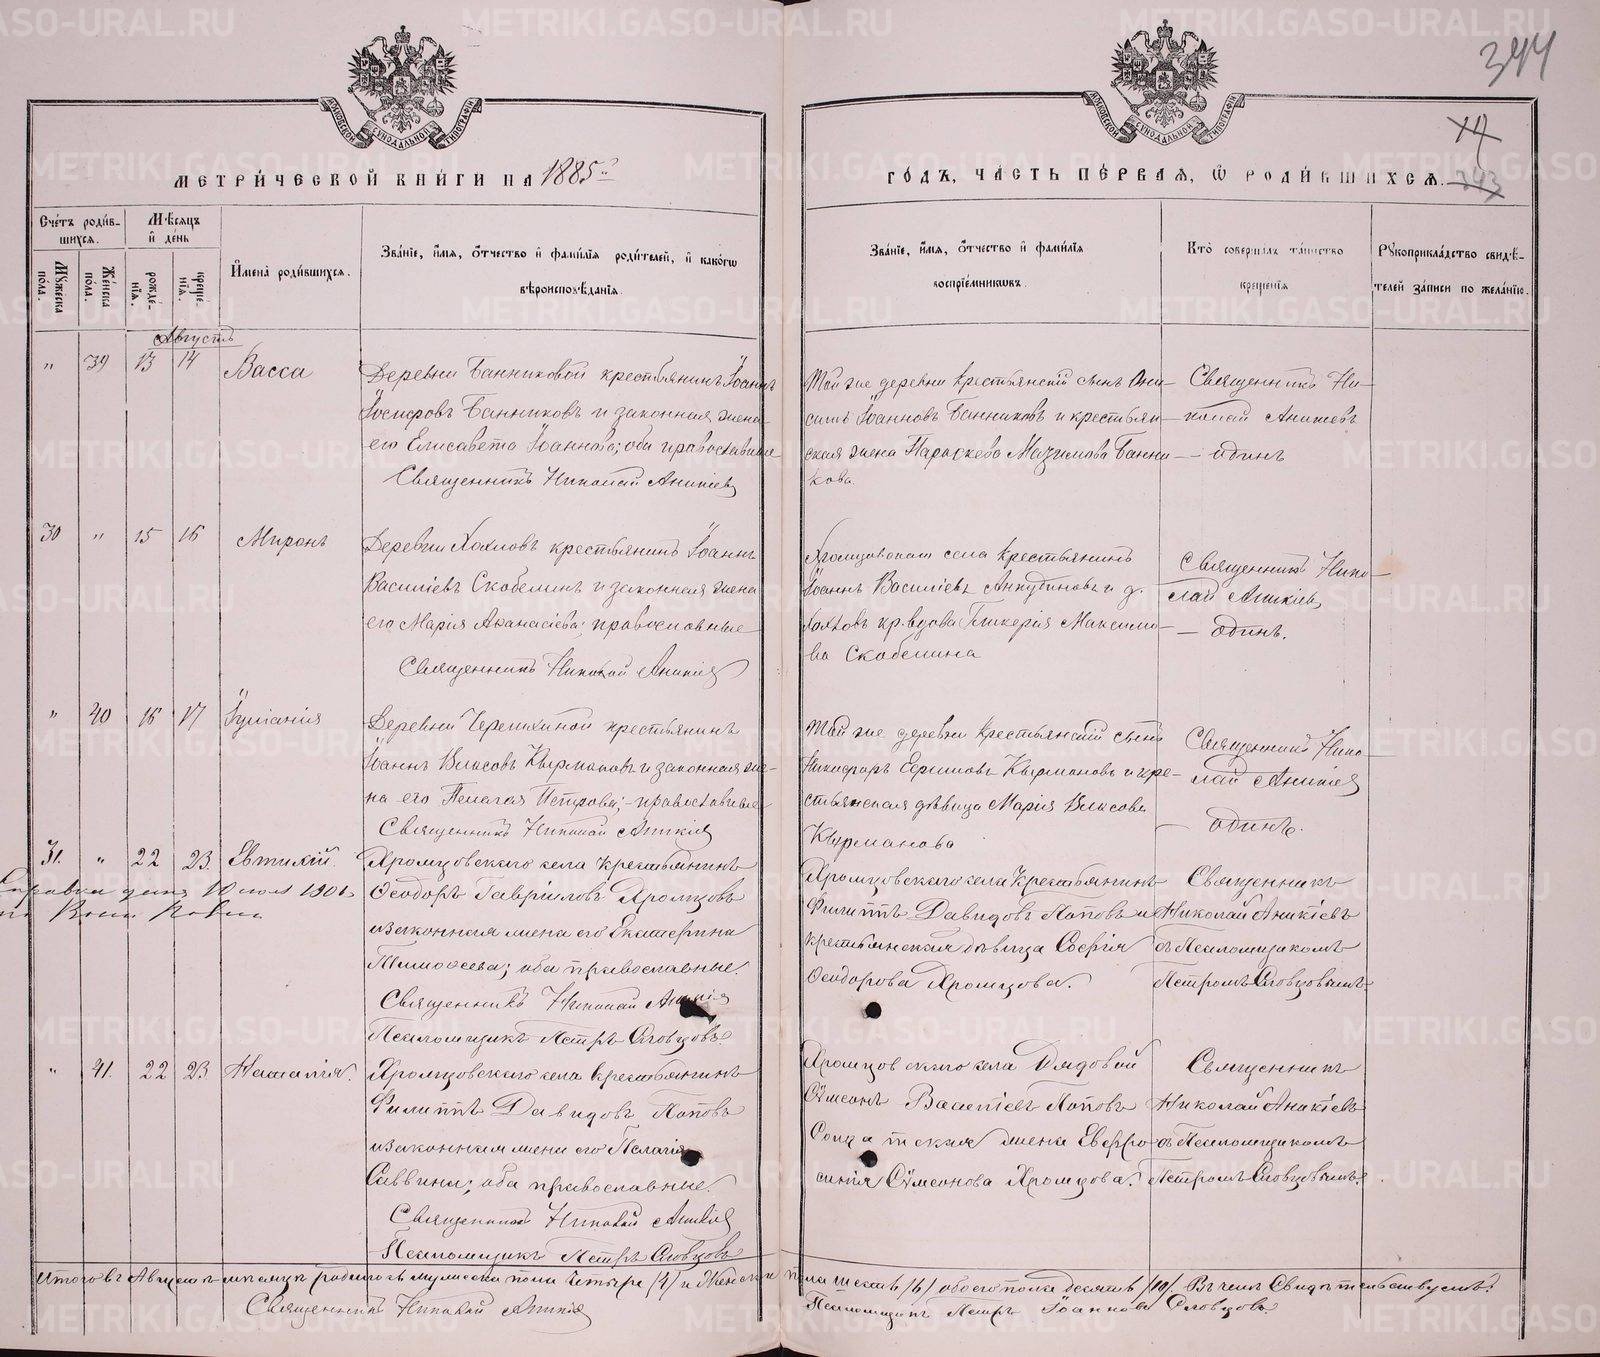 METRIKI.GASO-URAL.RU
344
14
343
МОСКОВСКОЙ СѴНОДАЛЬНОЙ ТИПОГРАФІИ
МОСКОВСКОЙ СѴНОДАЛЬНОЙ ТИПОГРАФІИ
МЕТРИ́ЧЕСКОЙ КНИ́ГИ НА 1885й
ГО́ДЪ, ЧА́СТЬ ПЕ́РВАЯ, Ѡ РОДИ́ВШИХСЯ.
Сче́тъ роди́вшихся.
Мꙋжеска по́ла.
Же́нска по́ла.
Мѣ́сяцъ и де́нь
рожде́нїя.
креще́нїя.
И҆мена̀ роди́вшихся.
Зва́нїе, и҆́мя, ѻ҆́тчество и҆ фами́лїя роди́телей, и҆ како́гѡ вѣроисповѣ́данїя.
Зва́нїе, и҆́мя, ѻ҆́тчество и҆ фами́лїя воспрїе́мникѡвъ.
Кто̀ соверша́лъ та́инство креще́нїя
Рꙋкоприкла́дство свидѣ́телей за́писи по жела́нїю.
Августъ
" 39 13 14 Васса
Деревни Банниковой крестьянинъ Іоаннъ
Іосифовъ Банниковъ и законная жена
его Елисавета Іоаннова; оба православные
Священникъ Николай Аникіевъ
Той же деревни крестьянскій сынъ Они-
симъ Іоанновъ Банниковъ и крестьян-
ская жена Параскева Максимова Банни-
кова.
Священникъ Ни-
колай Аникіевъ
— одинъ
30 " 15 16 Миронъ
Деревни Хохловъ крестьянинъ Іоаннъ
Василіевъ Скобелинъ и законная жена
его Марія Аѳанасіева; православные
Священникъ Николай Аникіевъ
Хромцовскаго села крестьянинъ
Іоаннъ Василіевъ Анкудиновъ и д.
Хохловъ кр. вдова Гликерія Максимо-
ва Скобелина
Священникъ Нико-
лай Аникіевъ
— одинъ.
" 40 16 17 Іуліанія
Деревни Черемхиной крестьянинъ
Іоаннъ Власовъ Кырмановъ и законная же-
на его Пелагія Петрова; православные
Священникъ Николай Аникіевъ
Той же деревни крестьянскій сынъ
Никифоръ Ефимовъ Кырмановъ и кре-
стьянская дѣвица Марія Власова
Кырманова
Священникъ Нико-
лай Аникіевъ
— одинъ.
31. " 22 23 Евтихій.
Справка дана 10 1901
Хромцовскаго села крестьянинъ
Ѳеодоръ Гавріиловъ Хромцовъ
и законная жена его Екатерина
Тимоѳеева; оба православные.
Священникъ Николай Аникіевъ
Псаломщикъ Петръ Словцовъ.
Хромцовскаго села крестьянинъ
Филиппъ Давидовъ Поповъ и
крестьянская дѣвица Софія
Ѳеодорова Хромцова.
Священникъ
Николай Аникіевъ
съ Псаломщикомъ
Петромъ Словцовымъ.
" 41. 22 23 Наталія.
Хромцовскаго села крестьянинъ
Филиппъ Давидовъ Поповъ
и законная жена его Пелагія
Саввина; оба православные.
Священникъ Николай Аникіевъ
Псаломщикъ Петръ Словцовъ
Хромцовскаго села Рядовой
Сѵмеонъ Василіевъ Поповъ
Солдатская жена Евфро-
синія Сѵмеонова Хромцова.
Священникъ
Николай Аникіевъ
съ Псаломщикомъ
Петромъ Словцовымъ.
Итого въ Августѣ мѣсяцѣ родилось мужеска пола четыре (4) и женска пола шесть (6) обоего пола десять (10). Въ чемъ Свидѣтельствуемъ:
Священникъ Николай Аникіевъ
Псаломщикъ Петръ Іоанновъ Словцовъ.